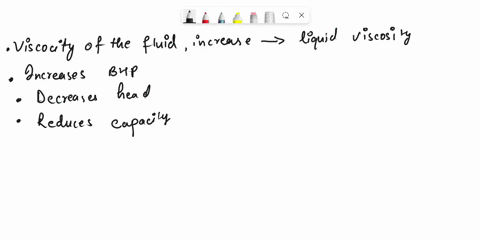 • Viscocity of the fluid, increase → liquid viscosity
• Increases BHP
• Decreases head
• Reduces capacity